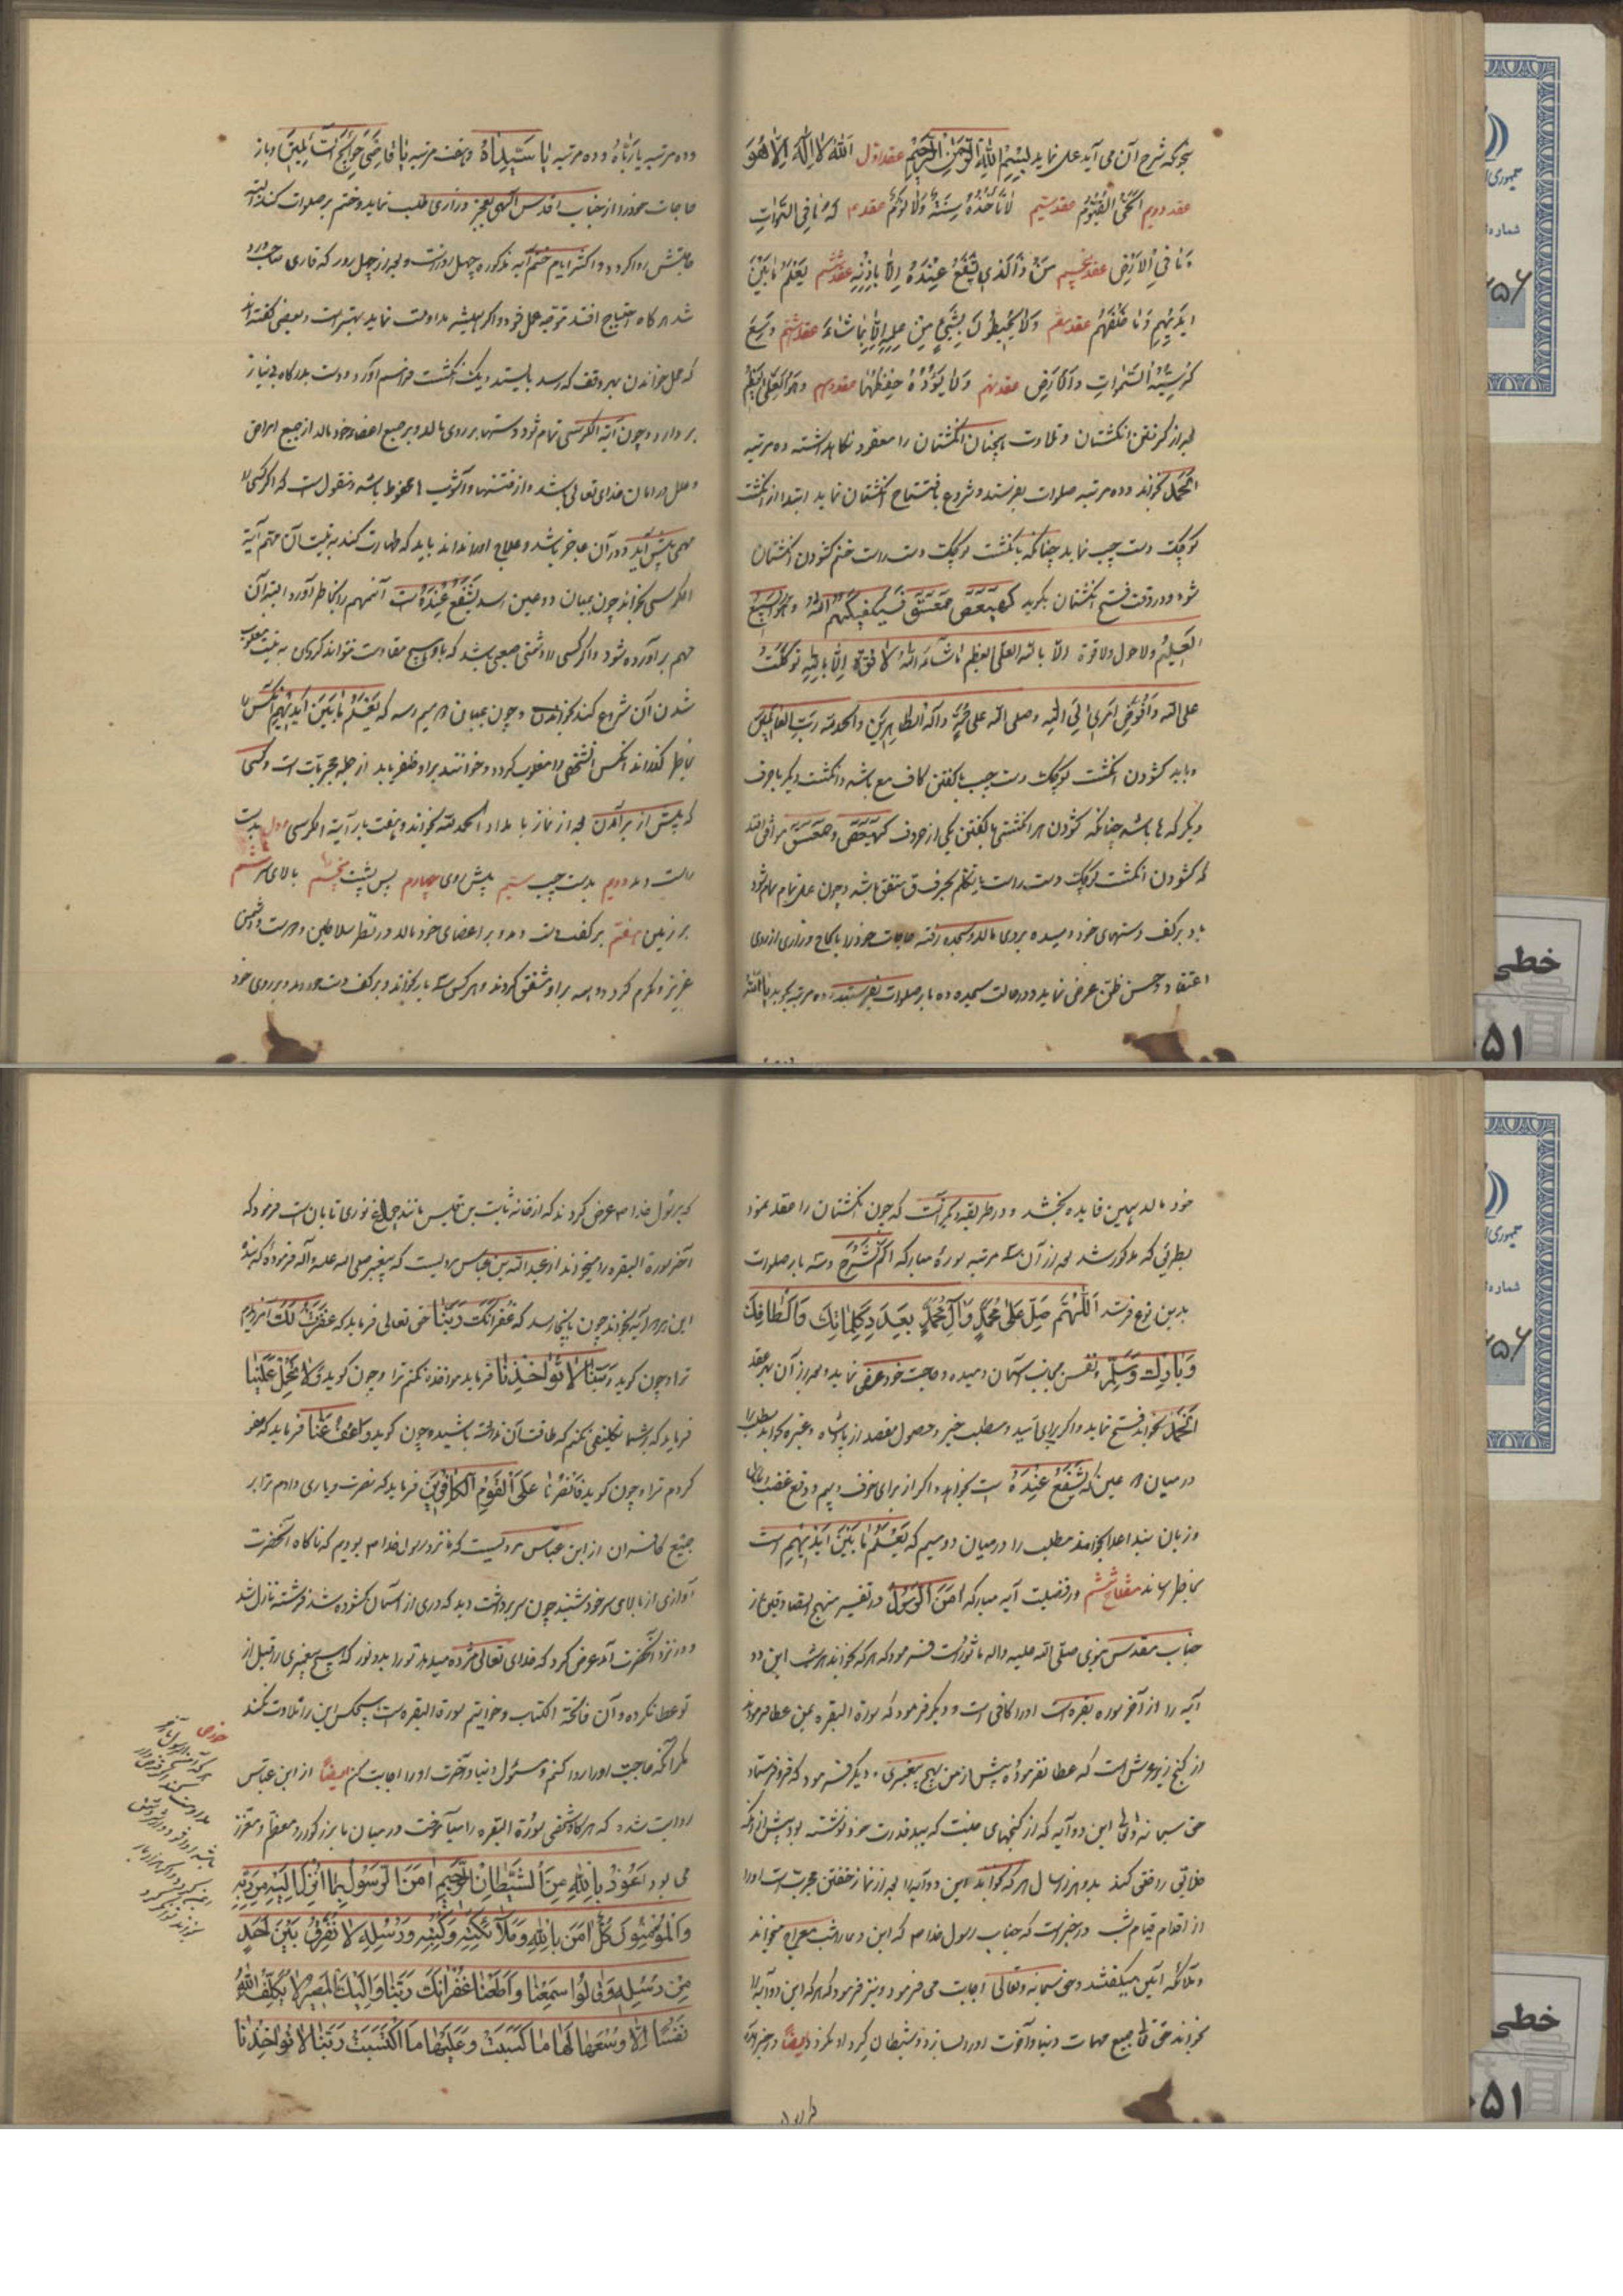 بنحویکه شرح آن می آید عمل نماید بسم الله الرحمن الرحیم عقد اول الله لا اله الا هو
عقد دویم الحی القیوم عقد سیم لا تأخذه سنة ولا نوم عقد له ما فی السموات
وما فی الارض عقد پنجم من ذا الذی یشفع عنده الا باذنه عقد ششم یعلم ما بین
ایدیهم وما خلفهم عقد هفتم ولا یحیطون بشیء من علمه الا بما شاء عقد هشتم وسع
کرسیه السموات والارض عقد نهم ولا یؤده حفظهما عقد دهم وهو العلی العظیم
بعد از گرفتن انگشتان و تلاوت همچنان انگشتان را معقود نگاهداشته ده مرتبه
الحمد بخواند و ده مرتبه صلوات بفرستد و شروع بافتتاح انگشتان نماید ابتدا از انگشت
کوچک دست چپ نماید چنانکه بانگشت کوچک دست راست ختم گشودن انگشتان
شود و در وقت فتح انگشتان بگوید کهیعص حمعسق فسیکفیکهم الله وهو السمیع
العلیم ولا حول ولا قوة الا بالله العلی العظیم ما شاء الله لا قوة الا بالله توکلت
علی الله وافوض امری الی الله وصلی الله علی محمد وآله الطاهرین والحمد لله رب العالمین
و باید گشودن انگشت کوچک دست چپ با گفتن کاف مع باشد و انگشت دیگر با حرف
دیگر که ها باشد چنانکه گشودن هر انگشتی با گفتن یکی از حروف کهیعص و حمعسق موافق افتد
که گشودن انگشت کوچک دست راست با تکلم بحرف ق متفق باشد و چون عمل تمام شود
باد بر کف دستهای خود دمیده بروی مالد و سجده رفته حاجات خود را بالحاح و زاری از روی
اعتقاد و حسن ظن عرض نماید و در حالت سجده ده بار صلوات بفرستد و ده مرتبه بگوید یا الله
و ده مرتبه یا رباه و ده مرتبه یا سیداه و هفت مرتبه یا قاضی حوائج السائلین و باز
حاجات خود را از جناب اقدس الهی بعجز و زاری طلب نماید و ختم بر صلوات کند البته
حاجتش روا گردد و اکثر ایام ختم آیه مذکوره چهل روز است و بعد از چهل روز که قاری صاحب ورد
شد هر گاه احتیاج افتد توجه عمل خود و اگر همیشه مداومت نماید بهتر است و بعضی گفته اند
که عمل خواندن بهر وقف که رسد بایستد و یک انگشت فراهم آورد و دست بدرگاه بی نیاز
بردارد و چون آیة الکرسی تمام شود دستها بر روی مالد و بر جمیع اعضاء خود مالد از جمیع امراض
و علل در امان خدای تعالی باشد و از فتنها و آشوب ها محفوظ باشد و منقول است که اگر کسی را
مهمی پیش آید و در آن عاجز باشد و علاج او را نداند باید که طهارت کند به نیت آن مهم آیة
الکرسی بخواند چون بمیان دو عین رسد یشفع عنده است آنمهم را بخاطر آورد البته آن
مهم برآورده شود و اگر کسی را دشمنی صعبی باشد که با او هیچ مقاومت نتواند کردن به نیت مغلوب
شدن آن شروع کند بخواندن و چون بمیان دو میم رسد که یعلم ما بین ایدیهم آنکس را
بخاطر گذراند آنکس الشخص را مغلوب گردد و خواننده بر او ظفر یابد از جمله مجربات است و کسی
که پیش از برآمدن بعد از نماز بامداد الحمد لله بخواند و هفت بار آیة الکرسی اول بدست
راست دمد دویم بدست چپ سیم پیش روی چهارم پس پشت پنجم بالای سر ششم
بر زمین هفتم بر کف دست دمد و بر اعضای خود مالد در نظر سلاطین و دوست و دشمن
عزیز و مکرم گردد و همه بر او مشفق گردند و هر کس سه بار بخواند و بر کف دست دمد و بر روی خود
خود مالد همین فایده بخشد و در طریقه دیگر آنست که چون انگشتان را عقد نمود
بطریقی که مذکور شد بعد از آن سه مرتبه سورۀ مبارکه الم نشرح و سه بار صلوات
بدین نوع فرستد اللهم صل علی محمد وآل محمد بعدد کلماتک والطافک
وبارک وسلم و نفس بجانب آسمان دمیده و حاجت خود عرض نماید و بعد از آن بهر عقد
الحمد بخواند فتح نماید و اگر برای امید و مطلب خیر و حصول مقصد از پادشاه و غیره خواند مطلب را
در میان دو عین که یشفع عنده است بخواند و اگر از برای خوف و بیم و دفع غضب
و زبان بند اعدا بخواند مطلب را در میان دو میم که یعلم ما بین ایدیهم است
بخاطر رساند مفتاح ششم در فضیلت آیه مبارکه امن الرسول در تفسیر منهج الصادقین از
جناب مقدس نبوی صلی الله علیه واله ماثور است فرمود که هر که بخواند هر شب این دو
آیه را از آخر سوره بقره است او را کافی است و دیگر فرمود که سورة البقره بمن عطا فرموده اند
از گنج زیر عرش است که عطا نفرموده پیش از من بهیچ پیغمبری و دیگر فرمود که فرو فرستاد
حق سبحانه و تعالی این دو آیه که از گنجهای جنت که بید قدرت خود نوشته بود پیش از آنکه
خلایق را خلق کند بدو هزار سال هر که بخواند این دو آیه را بعد از نماز خفتن مجریست او را
از اقدام قیام شب در خبر است که جناب رسول خدا ص که این دعا در شب معراج میخواند
و ملائکه آمین میگفتند و حق سبحانه و تعالی اجابت می فرمود و نیز فرمود که هر که این دو آیه را
بخواند حق تعالی جمیع مهمات دنیا و آخرت او را بسازد و شیطان گرد او نگردد ایضا در خبر است
که برسول خدا ص عرض کردند که از خانه ثابت بن قیس مانند چراغ نوری تابان است فرمود که
آخر سورة البقره را میخواند از عبد الله بن عباس مرویست که پیغمبر صلی الله علیه وآله فرموده که بندۀ
این دو آیه بخواند چون باینجا رسد که غفرانک ربنا حق تعالی فرماید که غفرت لک آمرزیدم
ترا و چون گوید ربنا لا تؤاخذنا فرماید مواخذه نکنم ترا و چون گوید ولا تحمل علینا
فرماید که بر شما تکلیفی نکنم که طاقت آن نداشته باشید و چون گوید واعف عنا فرماید که عفو
کردم ترا و چون گوید فانصرنا علی القوم الکافرین فرماید که نصرت و یاری دادم ترا بر
جمیع کافران از ابن عباس مرویست که ما نزد رسول خدا ص بودیم که ناگاه آنحضرت
آوازی از بالای سر خود شنید چون سر برداشت دید که دری از آسمان گشوده شد فرشته نازل شد
و در نزد آنحضرت آمد عرض کرد که خدای تعالی مژده میدهد تو را بدو نور که هیچ پیغمبری را قبل از
تو عطا نکرده و آن فاتحة الکتاب و خواتیم سورة البقره است هیچکس این را تلاوت نکند
مگر آنکه حاجت او را روا کنم و مسئول دنیا و آخرت او را اجابت کنم ایضا از ابن عباس
روایت شده که هر گاه شخصی سورة البقره را میآموخت در میان ما بزرگوار و معظم و معزز
می بود اعوذ بالله من الشیطان الرجیم امن الرسول بما انزل الیه من ربه
والمؤمنون کل امن بالله وملائکته وکتبه ورسله لا نفرق بین احد
من رسله وقالوا سمعنا واطعنا غفرانک ربنا والیک المصیر لا یکلف الله
نفسا الا وسعها لها ما کسبت وعلیها ما اکتسبت ربنا لا تؤاخذنا
خطی
۵۱
خطی
۵۱